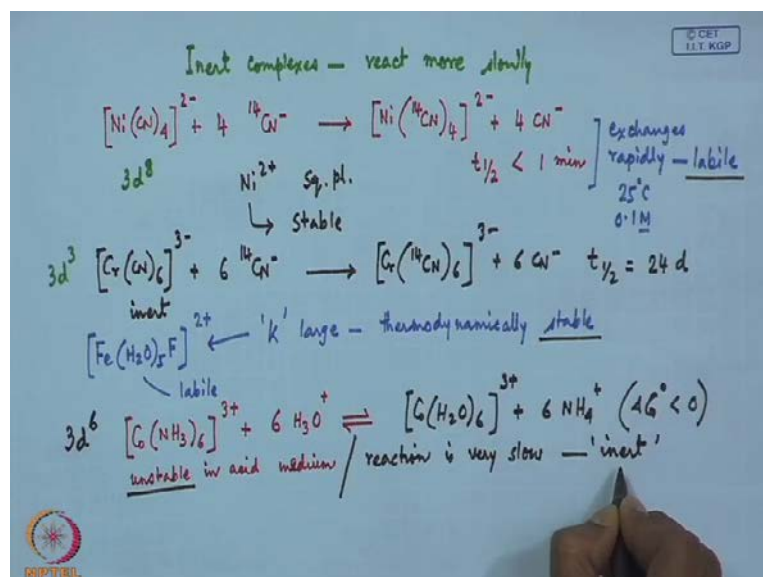 © CET
I.I.T. KGP
Inert complexes — react more slowly
[Ni(CN)₄]²⁻ + 4 ¹⁴CN⁻ → [Ni(¹⁴CN)₄]²⁻ + 4 CN⁻ ] exchanges
t₁/₂ < 1 min rapidly — labile
3d⁸ Ni²⁺ Sq. pl. 25°C
↳ stable 0.1 M
3d³ [Cr(CN)₆]³⁻ + 6 ¹⁴CN⁻ → [Cr(¹⁴CN)₆]³⁻ + 6 CN⁻ t₁/₂ = 24 d
inert
[Fe(H₂O)₅F]²⁺ ← 'K' large — thermodynamically stable
labile
3d⁶ [Co(NH₃)₆]³⁺ + 6 H₃O⁺ ⇌ [Co(H₂O)₆]³⁺ + 6 NH₄⁺ (ΔG° < 0)
unstable in acid medium / reaction is very slow — 'inert'
NPTEL